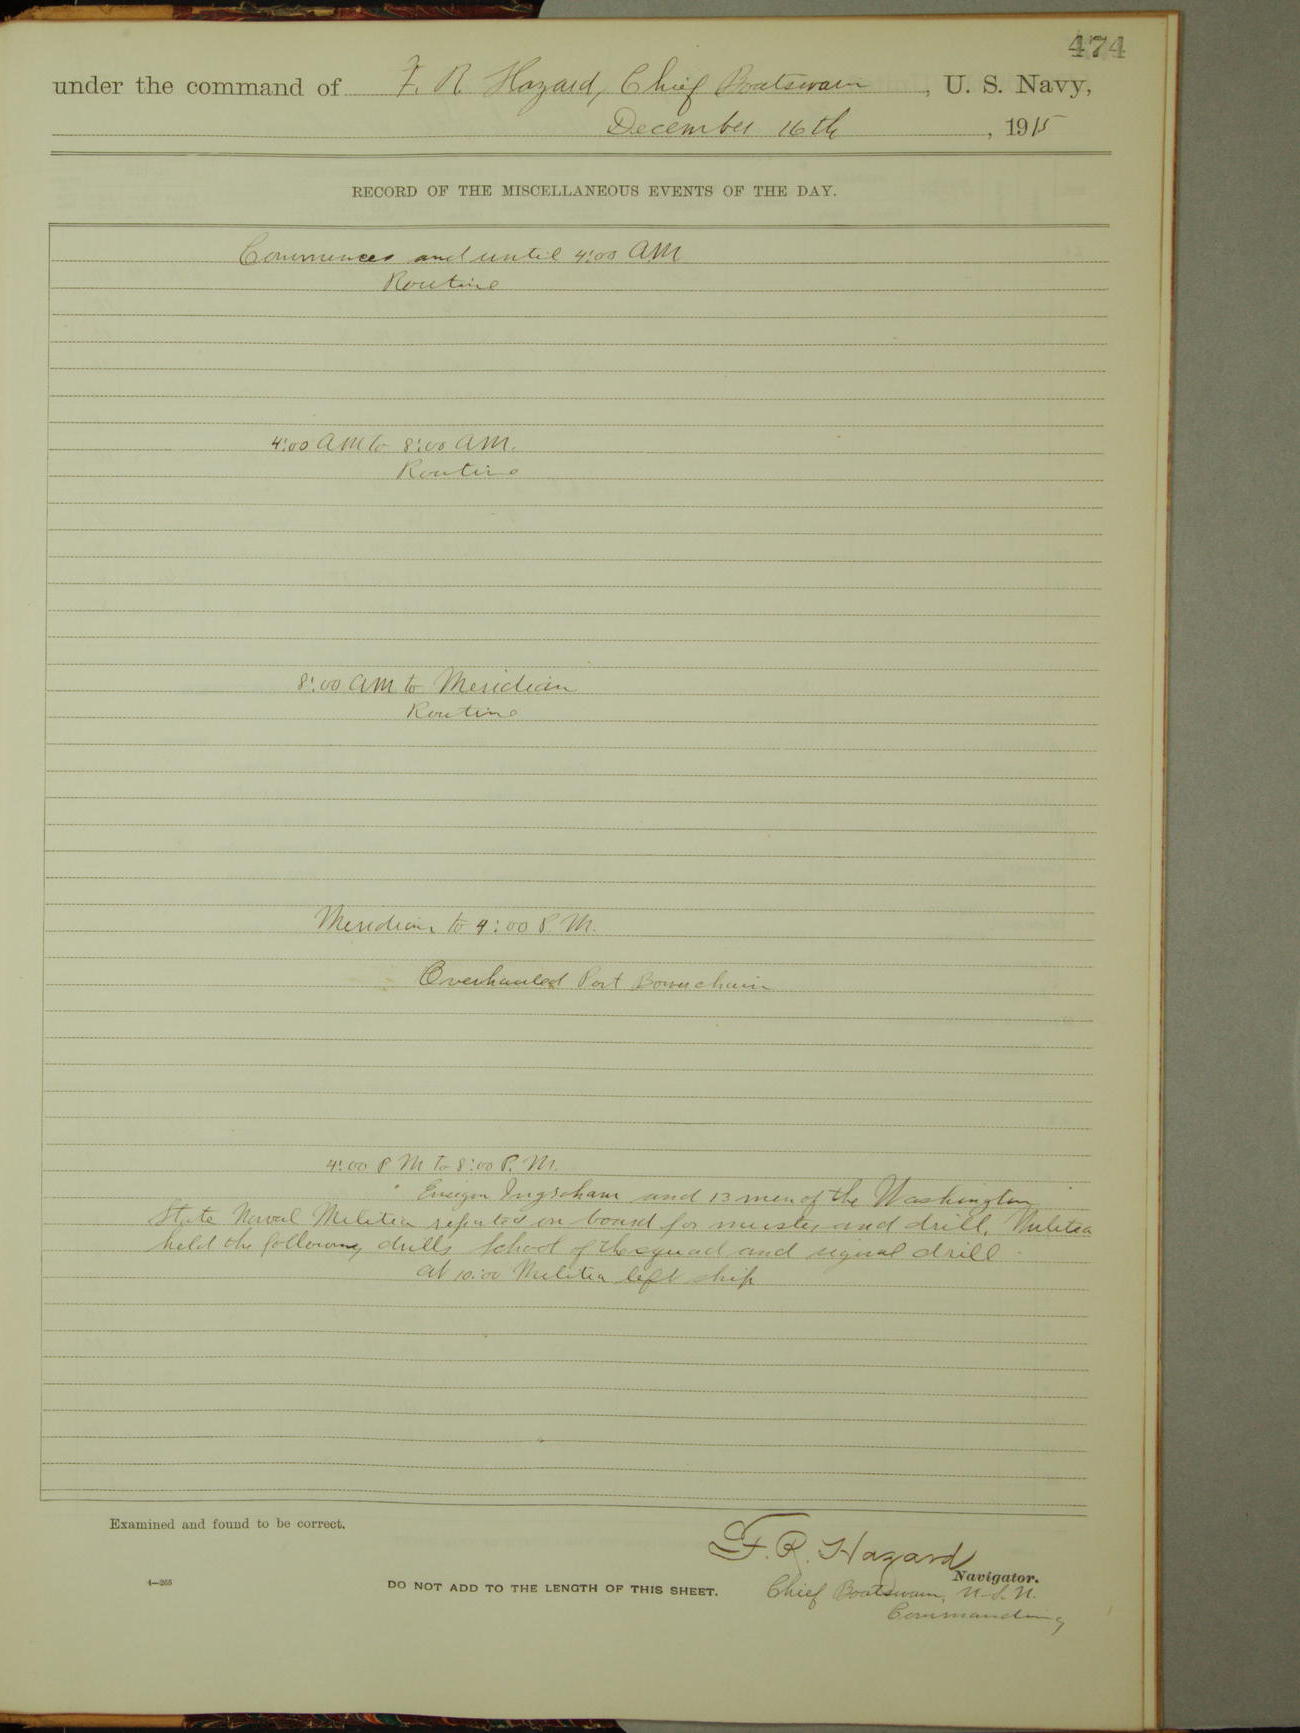 474
under the command of F. R. Hazard, Chief Boatswain, U. S. Navy,
December 16th, 1915
RECORD OF THE MISCELLANEOUS EVENTS OF THE DAY.
Commences and until 4:00 A.M
Routine
4:00 A M to 8:00 A.M.
Routine
8:00 A M to Meridian
Routine
Meridian to 4:00 P. M.
Overhauled Port Bower chain
4:00 P M to 8:00 P. M.
Ensign Ingraham and 13 men of the Washington
State Naval Militia reported on board for muster and drill, Militia
held the following drills School of the squad and signal drill
At 10:00 Militia left ship
Examined and found to be correct.
F. R. Hazard
Navigator.
4—265
DO NOT ADD TO THE LENGTH OF THIS SHEET.
Chief Boatswain, U.S.N.
Commanding